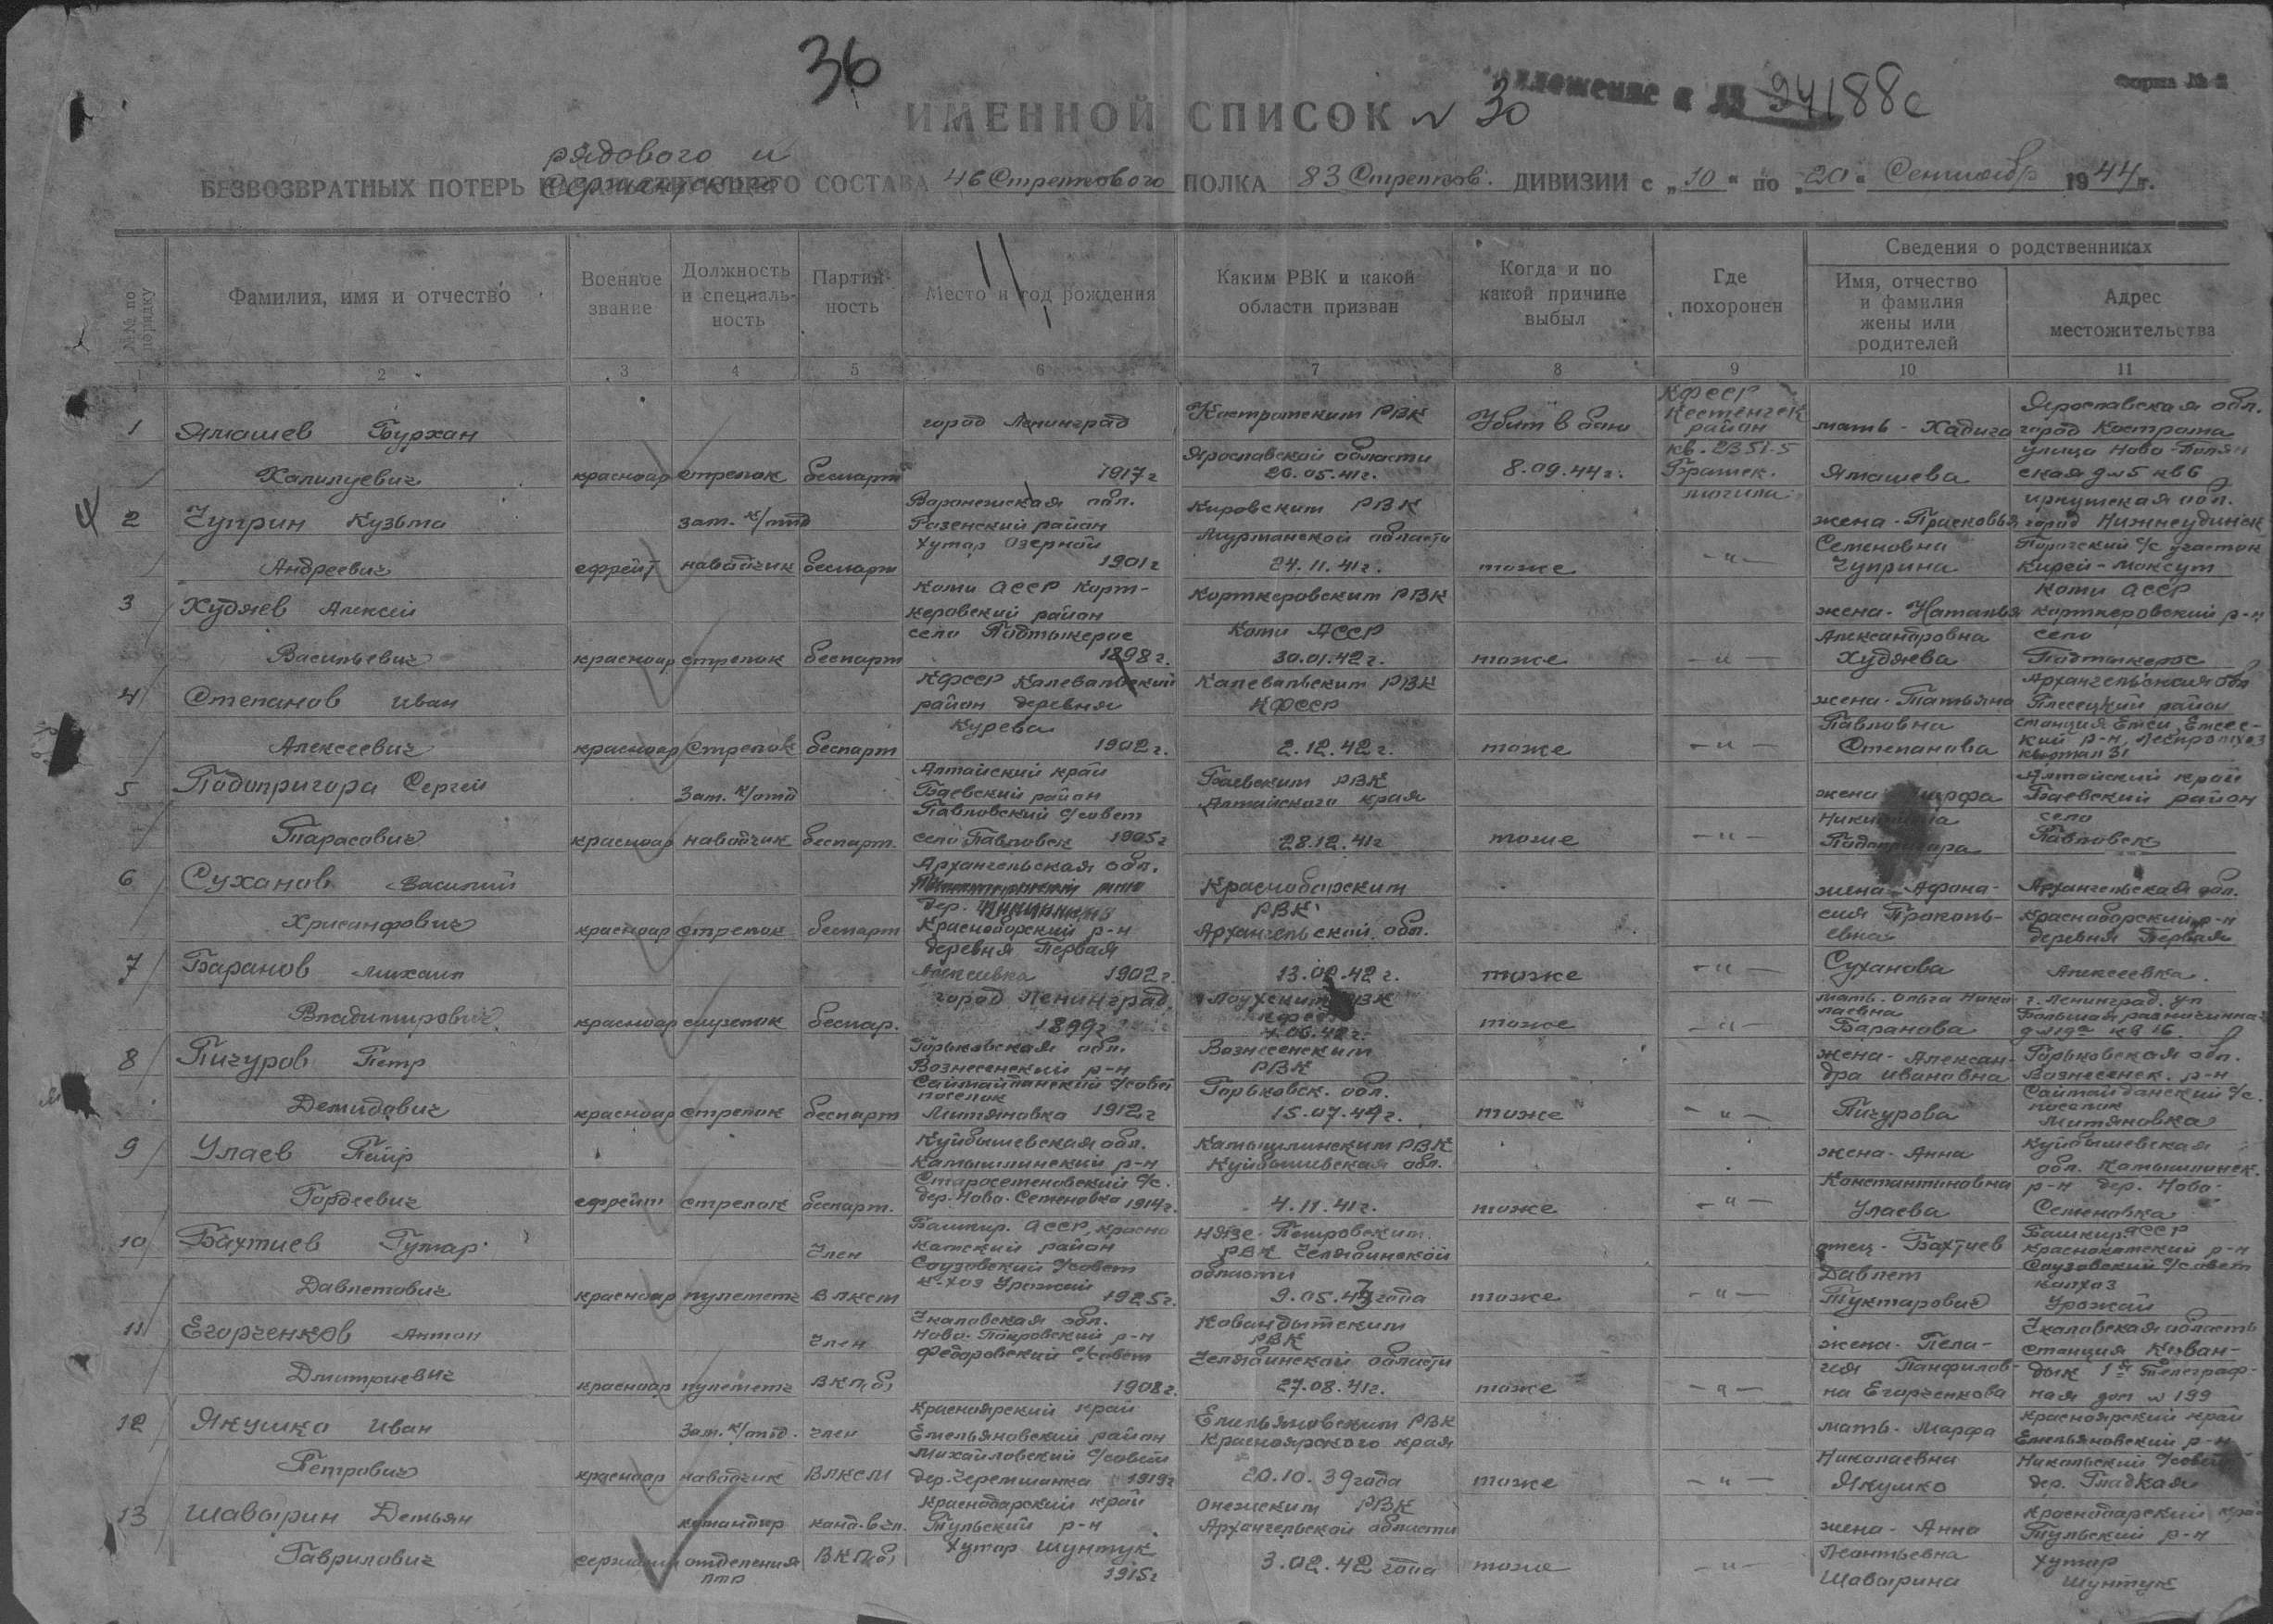 36
приложение к № 94188с
Форма № 2
ИМЕННОЙ СПИСОК № 30
рядового и
БЕЗВОЗВРАТНЫХ ПОТЕРЬ сержантского СОСТАВА 46 Стрелкового ПОЛКА 83 Стрелков. ДИВИЗИИ с „10“ по „20“ Сентябр 1944 г.
№№ по порядку
Фамилия, имя и отчество
Военное звание
Должность и специаль-ность
Партий-ность
Место и год рождения
Каким РВК и какой области призван
Когда и по какой причине выбыл
Где похоронен
Сведения о родственниках
Имя, отчество и фамилия жены или родителей
Адрес местожительства
2 3 4 5 6 7 8 9 10 11
1 Ямашев Бурхан Халилуевич
красноар стрелок беспарт
город Ленинград 1917 г
Костромским РВК Ярославской области 20.05.41г.
Убит в бою 8.09.44г.
КФССР Кестенгск район кв. 2351-5 Братск. могила
мать - Хадича Ямашева
Ярославская обл. город Кострома улица Ново-Полян ская д №5 кв 6
2 Чуприн Кузьма Андреевич
ефрейт зам. к/отд наводчик беспарт
Воронежская обл. район хутор Озерной 1901г
Кировским РВК Мурманской области 24.11.41г.
тоже
- " -
жена - Прасковья Семеновна Чуприна
иркутская обл. город Нижнеудинск с/с участок Кирей-Моксут
3 Худяев Алексей Васильевич
красноар стрелок беспарт
Коми АССР Корт-керовский район село Подтыкерос 1898г.
Корткеровским РВК Коми АССР 30.01.42г.
тоже
- " -
жена - Наталья Александровна Худяева
Коми АССР корткеровский р-н село Подтыкерос
4 Степанов Иван Алексеевич
красноар стрелок беспарт
КФССР Калевальский район деревня Курева 1902г.
Калевальским РВК КФССР 2.12.42г.
тоже
- " -
жена - Татьяна Павловна Степанова
Архангельская обл Плесецкий район станция Емси, Емсес-кий р-н, Леспромхоз квартал 31
5 Подопригора Сергей Тарасович
красноар зам. к/отд наводчик беспарт.
Алтайский край Баевский район Павловский с/совет село Павловск 1905г
Баевским РВК Алтайского края 28.12.41г
тоже
- " -
жена Подопригора
Алтайский край Баевский район село Павловск
6 Суханов Василий Хрисанфович
красноар стрелок беспарт
Архангельская обл. дер. Красноборский р-н деревня Первая Алексеевка 1902г.
Красноборским РВК Архангельской обл. 13.02.42г.
тоже
- " -
жена - Афана-сия Прокопь-евна Суханова
Архангельская обл. Красноборский р-н деревня Первая Алексеевка.
7 Баранов Михаил Владимирович
красноар беспар.
город Ленинград 1899г
Лоухским РВК КФССР 7.06.42г.
тоже
- " -
мать - Ольга Нико-лаевна Баранова
г. Ленинград. ул Большая разночинная кв 16
8 Пичуров Петр Демидович
красноар стрелок беспарт
Горьковская обл. Вознесенский р-н Саймайданский с/совет поселок Митяновка 1912г
Вознесенским РВК Горьковск. обл. 15.07.44г.
тоже
- " -
жена - Алексан-дра Ивановна Пичурова
Горьковская обл. Вознесенск. р-н Саймайданский с/с. поселок Митяновка
9 Улаев Петр Гордеевич
ефрейт стрелок беспарт.
Куйбышевская обл. Камышлинский р-н Старосеменовский с/с. дер. Ново-Семеновка 1914г.
Камышлинским РВК Куйбышевская обл. 4.11.41г.
тоже
- " -
жена - Анна Константиновна Улаева
Куйбышевская обл. Камышлинск. р-н дер. Ново-Семеновка
10 Бахтиев Гумар Давлетович
красноар пулеметч Член ВЛКСМ
Башкир. АССР, красно камский район Саузовский с/совет к-хоз Урожай 1925г.
Нязе-Петровским РВК Челябинской области 9.05.43 года
тоже
- " -
отец - Бахтиев Давлет Туктарович
Башкир. АССР краснокамский р-н Саузовский с/совет колхоз Урожай
11 Егорченков Антон Дмитриевич
красноар пулеметч Член ВКП(б)
Чкаловская обл. Ново-Покровский р-н Федоровский с/совет 1908г.
Ковандыкским РВК Челябинской области 27.08.41г.
тоже
- " -
жена - Пела-гея Панфилов-на Егорченкова
Чкаловская область станция Куван-дык 1я Телеграф-ная дом №199
12 Якушко Иван Петрович
красноар Зам. к/отд. наводчик член ВЛКСМ
Красноярский край Емельяновский район Михайловский с/совет дер. Черемшанка 1919г
Емельяновским РВК Красноярского края 20.10.39 года
тоже
- " -
мать - Марфа Николаевна Якушко
Красноярский край Емельяновский р-н Никольский с/совет дер. Гладкая
13 Шавырин Демьян Гаврилович
сержант командир отделения птр канд. в чл. ВКП(б)
Краснодарский край Тульский р-н Хутор Шунтук 1915г
Онежским РВК Архангельской области 3.02.42 года
тоже
- " -
жена - Анна Леонтьевна Шавырина
Краснодарский край Тульский р-н хутор Шунтук